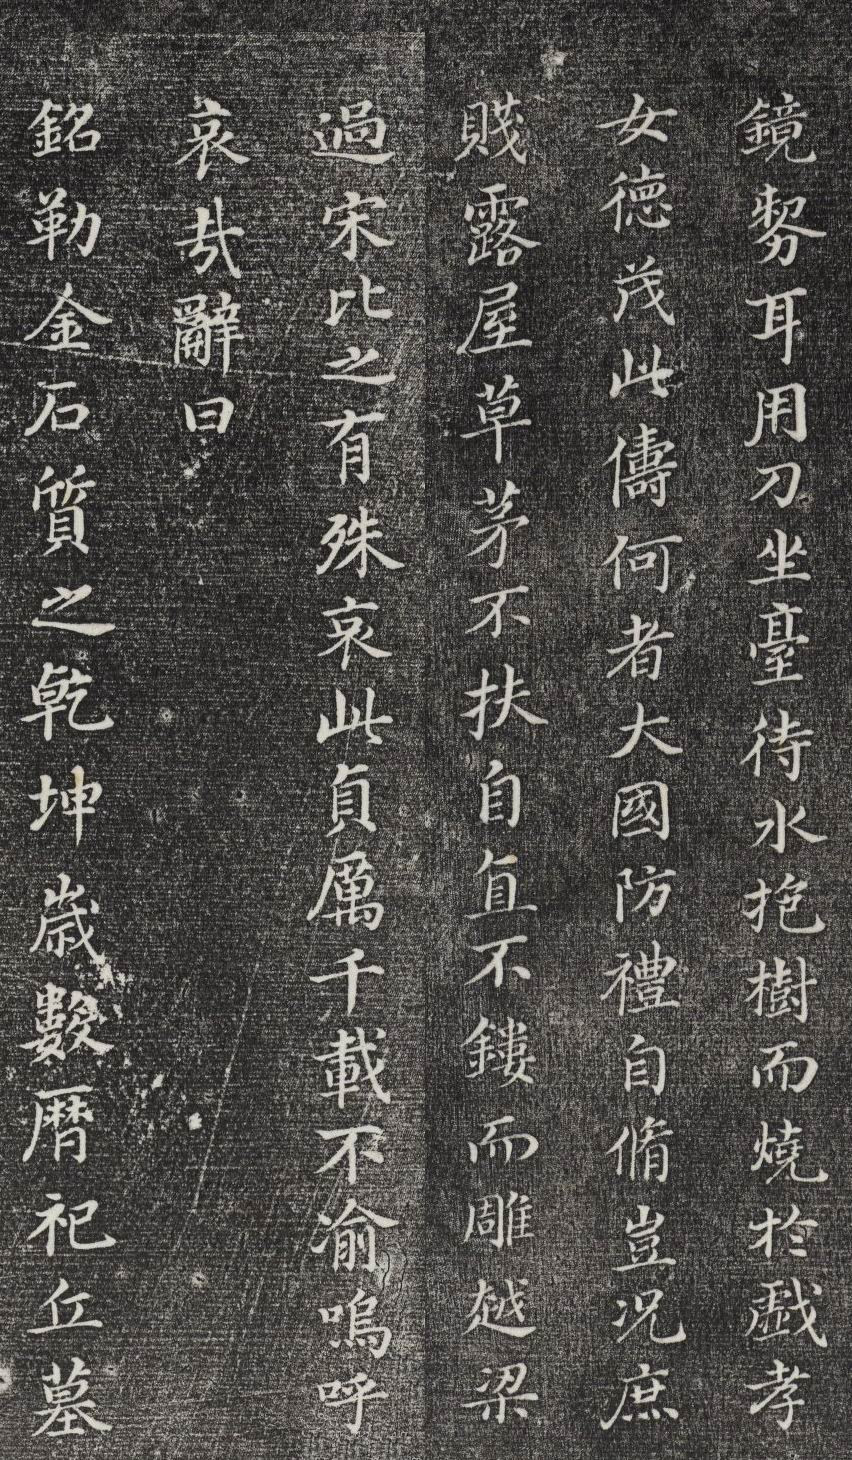 鏡剺耳用刀坐臺待水抱樹而燒於戯孝
女德茂此儔何者大國防禮自脩豈况庶
賤露屋草茅不扶自直不鏤而雕越梁
過宋比之有殊哀此貞厲千載不渝嗚呼
哀哉辭曰
銘勒金石質之乾坤歳數曆祀丘墓